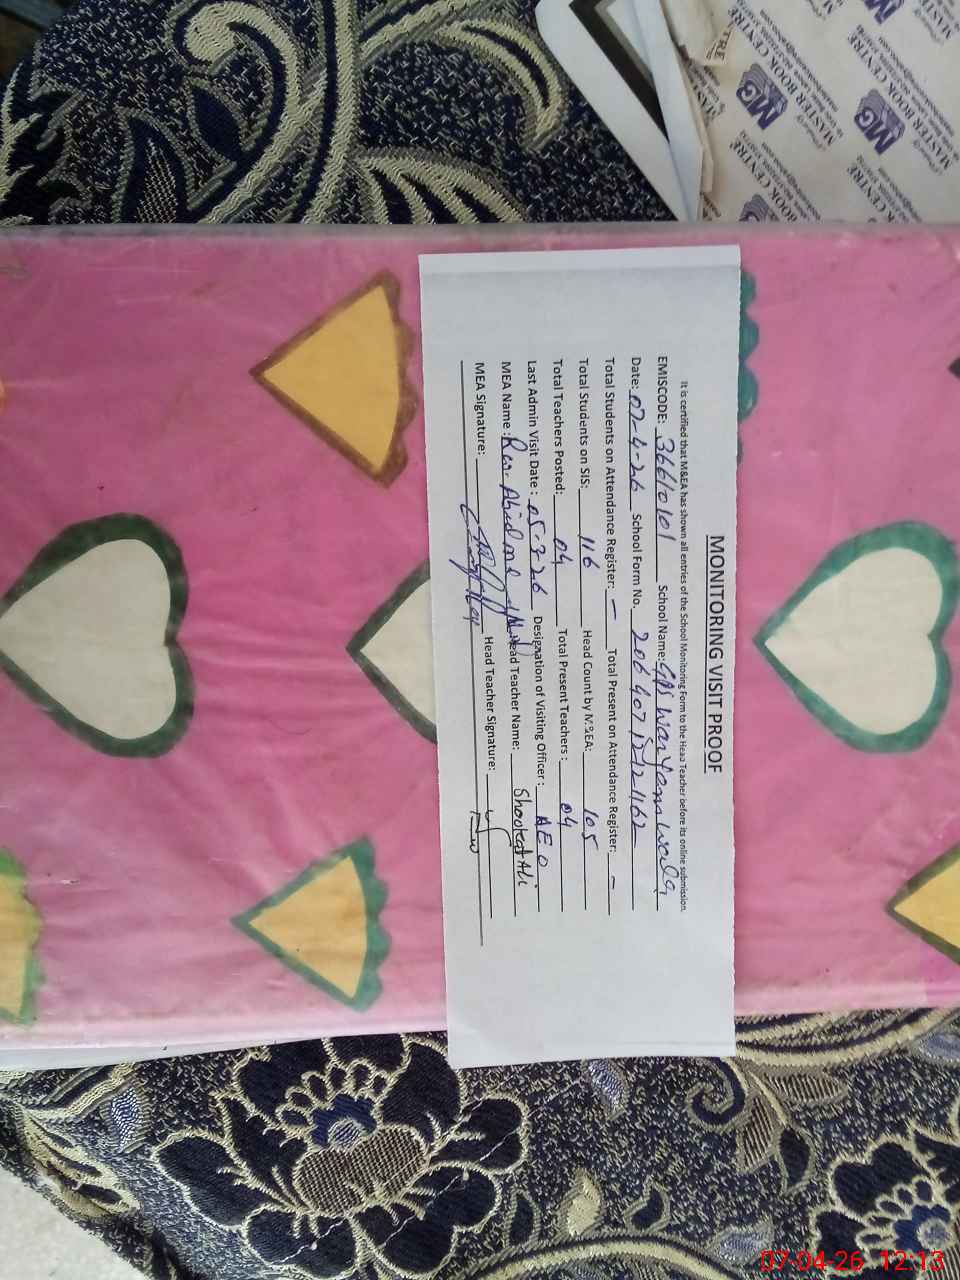 MONITORING VISIT PROOF
It is certified that M&EA has shown all entries of the School Monitoring Form to the Head Teacher before its online submission.
EMISCODE: 36610101 School Name: GPS Waryam Wala
Date: 07-4-26 School Form No. 206407121241162
Total Students on Attendance Register: — Total Present on Attendance Register: —
Total Students on SIS: 116 Head Count by M&EA: 105
Total Teachers Posted: 04 Total Present Teachers: 04
Last Admin Visit Date: 05-3-26 Designation of Visiting Officer: AEO
MEA Name: Head Teacher Name: Shoukat Ali
MEA Signature: Head Teacher Signature:
MASTER BOOK CENTRE
MG
07-04-26 12:13